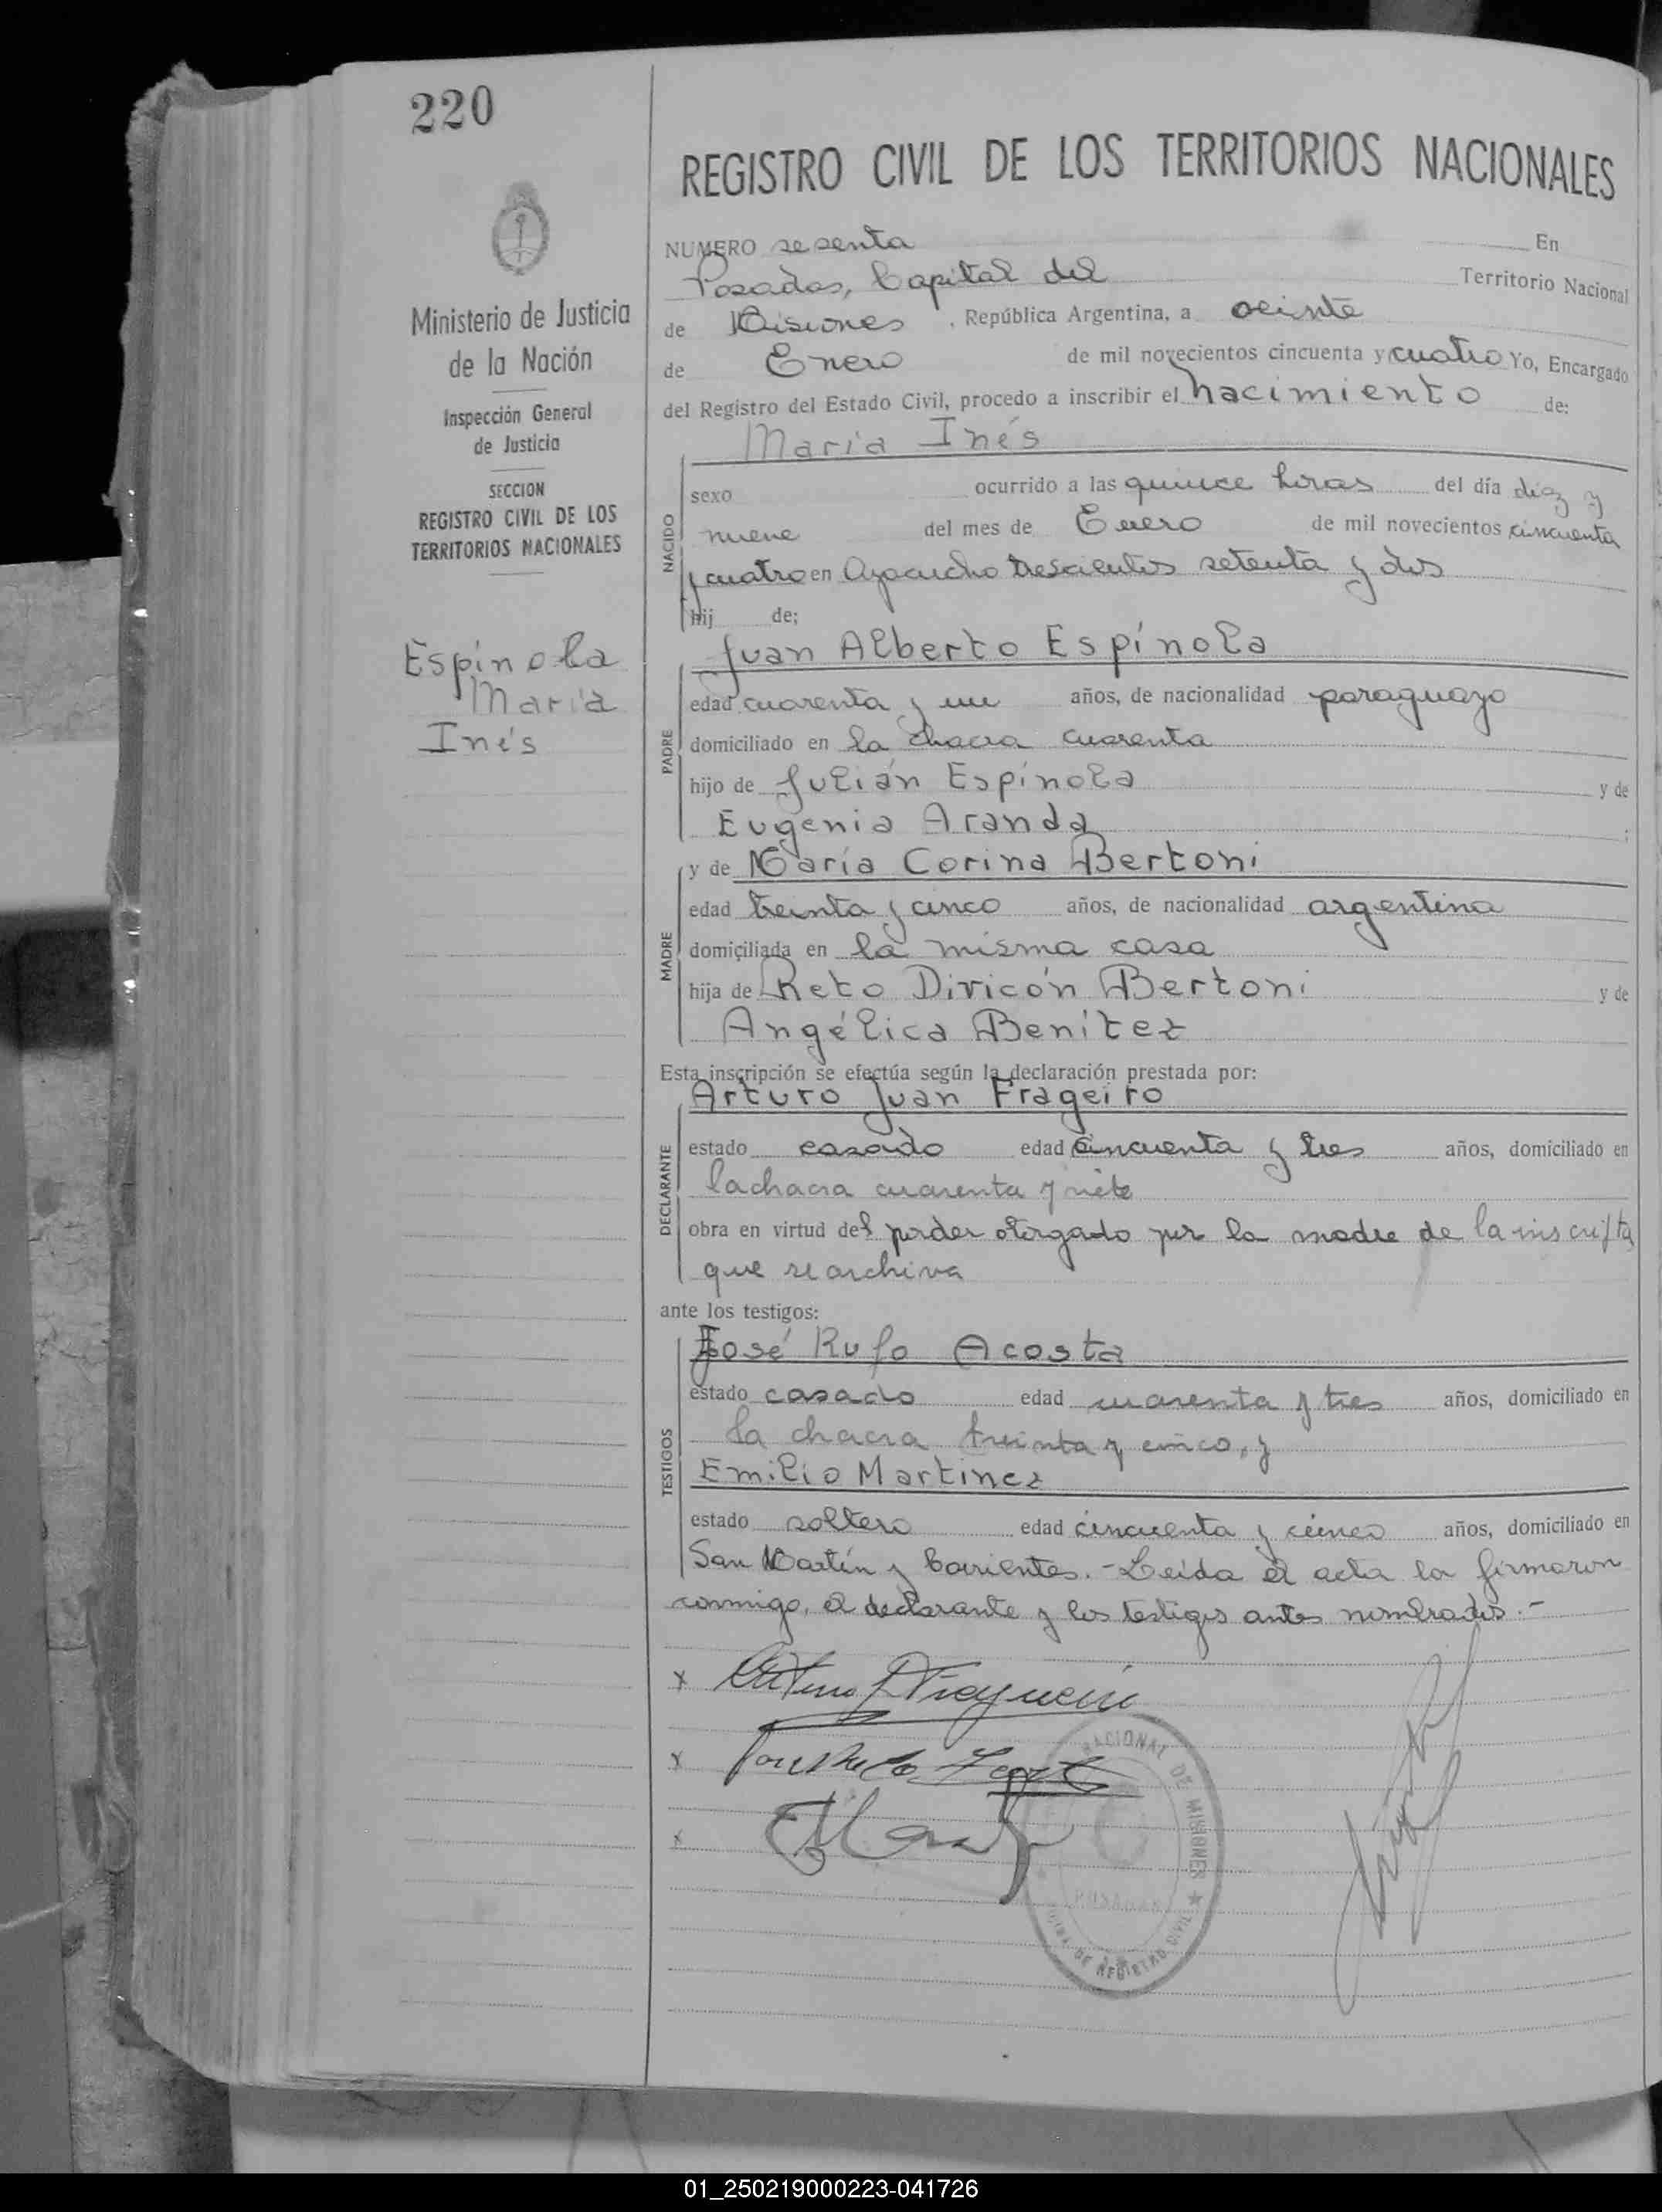 220
Ministerio de Justicia
de la Nación
Inspección General
de Justicia
SECCION
REGISTRO CIVIL DE LOS
TERRITORIOS NACIONALES
Espínola
María
Inés
REGISTRO CIVIL DE LOS TERRITORIOS NACIONALES
NUMERO sesenta En
Posadas, Capital del Territorio Nacional
de Misiones, República Argentina, a veinte
de Enero de mil novecientos cincuenta y cuatro Yo, Encargado
del Registro del Estado Civil, procedo a inscribir el nacimiento de:
María Inés
NACIDO
sexo ocurrido a las quince horas del día diez y
nueve del mes de Enero de mil novecientos cincuenta
y cuatro en Ayacucho trescientos setenta y dos
hij de;
Juan Alberto Espínola
PADRE
edad cuarenta y un años, de nacionalidad paraguayo
domiciliado en la chacra cuarenta
hijo de Julián Espínola y de
Eugenia Aranda ;
y de María Corina Bertoni
MADRE
edad treinta y cinco años, de nacionalidad argentina
domiciliada en la misma casa
hija de Reto Divicón Bertoni y de
Angélica Benítez
Esta inscripción se efectúa según la declaración prestada por:
Arturo Juan Frageiro
DECLARANTE
estado casado edad cincuenta y tres años, domiciliado en
la chacra cuarenta y siete
obra en virtud del poder otorgado por la madre de la inscripta
que se archiva
ante los testigos:
José Rufo Acosta
TESTIGOS
estado casado edad cuarenta y tres años, domiciliado en
la chacra treinta y cinco, y
Emilio Martinez
estado soltero edad cincuenta y cinco años, domiciliado en
San Martín y Corrientes. - Leída el acta la firmaron
conmigo, el declarante y los testigos antes nombrados. -
x
x
x
NACIONAL DE MISIONES
POSADAS
DE REGISTRO CIVIL
01_250219000223-041726